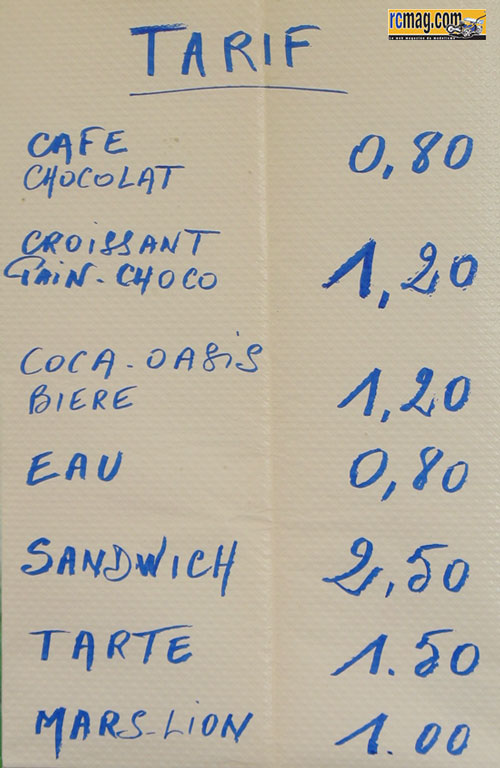 rcmag.com
TARIF
CAFE 0,80
CHOCOLAT
CROISSANT 1,20
PAIN-CHOCO
COCA-OASIS
BIERE 1,20
EAU 0,80
SANDWICH 2,50
TARTE 1.50
MARS-LION 1.00